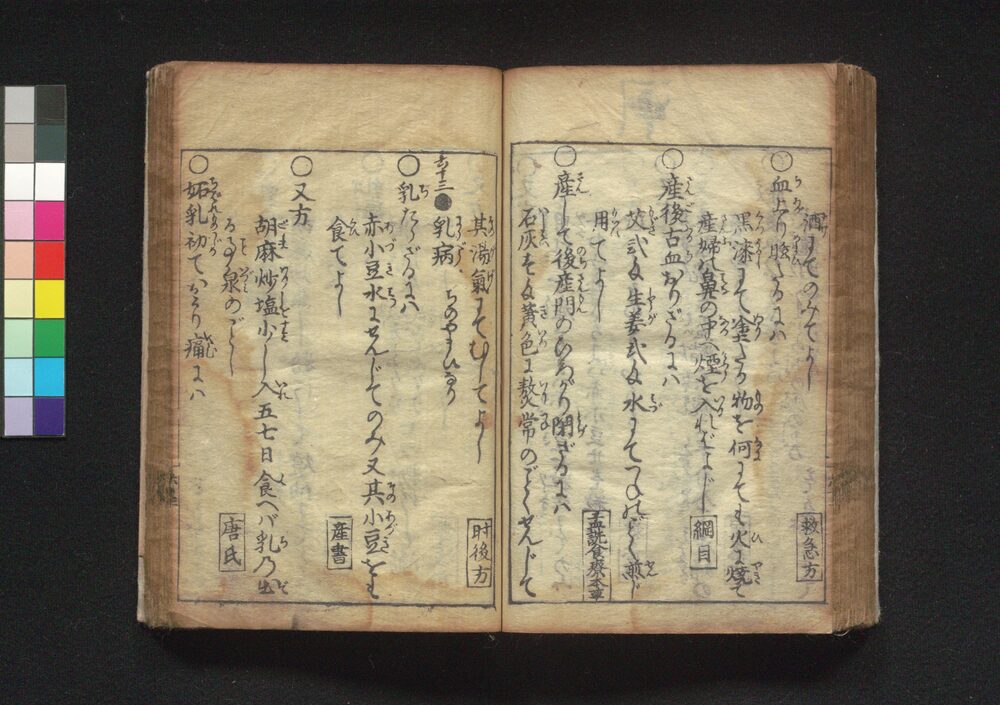 酒にてのみてよし
救急方
○血上り眩さるには
黒漆にて塗たる物を何にても火に焼て
産婦に鼻の中へ煙を入ればよし
綱目
○産後古血おりざるには
艾弐匁生姜弐匁水にてつねのごとく煎じ
用てよし
孟詵食療本草
○産して後産門のひろがり閉ざるには
石灰 黄色に熬常のごとくせんじて
其湯氣にてむしてよし
肘後方
六十三 ●乳病 ちのやまひなり
○乳たらざるには
赤小豆水にせんじてのみ又其小豆をも
食てよし
産書
○又方
胡麻炒塩少し入五七日食へバ乳乃出
る事泉のごとし
唐氏
○妬乳初ておこり痛には